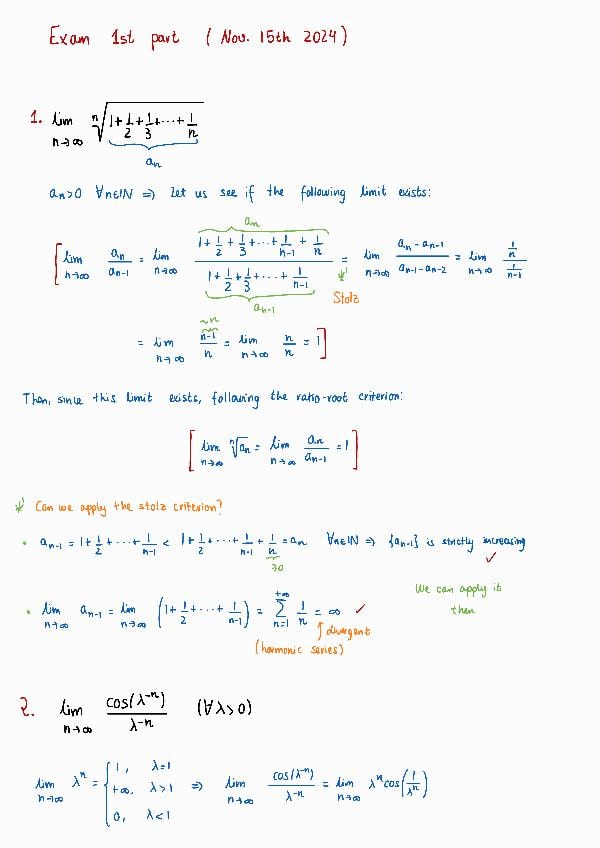 Exam 1st part (Nov. 15th 2024)
1. lim n→∞ ⁿ√(1+1/2+1/3+···+1/n)
aₙ
aₙ>0 ∀n∈ℕ ⇒ Let us see if the following limit exists:
aₙ
[lim n→∞ aₙ/aₙ₋₁ = lim n→∞ (1+1/2+1/3+···+1/(n-1)+1/n)/(1+1/2+1/3+···+1/(n-1)) = lim n→∞ (aₙ-aₙ₋₁)/(aₙ₋₁-aₙ₋₂) = lim n→∞ (1/n)/(1/(n-1))
* Stolz
aₙ₋₁
~n
= lim n→∞ (n-1)/n = lim n→∞ n/n = 1]
Then, since this limit exists, following the ratio-root criterion:
[lim n→∞ ⁿ√aₙ = lim n→∞ aₙ/aₙ₋₁ = 1]
* Can we apply the stolz criterion?
• aₙ₋₁ = 1+1/2+···+1/(n-1) < 1+1/2+···+1/(n-1)+1/n = aₙ ∀n∈ℕ ⇒ {aₙ₋₁} is strictly increasing
>0
✓
We can apply it
then
• lim n→∞ aₙ₋₁ = lim n→∞ (1+1/2+···+1/(n-1)) = ∑ n=1 +∞ 1/n = ∞ ✓
↑ divergent
(harmonic series)
2. lim n→∞ cos(λ⁻ⁿ)/λ⁻ⁿ (∀λ>0)
lim n→∞ λⁿ = { 1, λ=1
+∞, λ>1 ⇒ lim n→∞ cos(λ⁻ⁿ)/λ⁻ⁿ = lim n→∞ λⁿcos(1/λⁿ)
0, λ<1